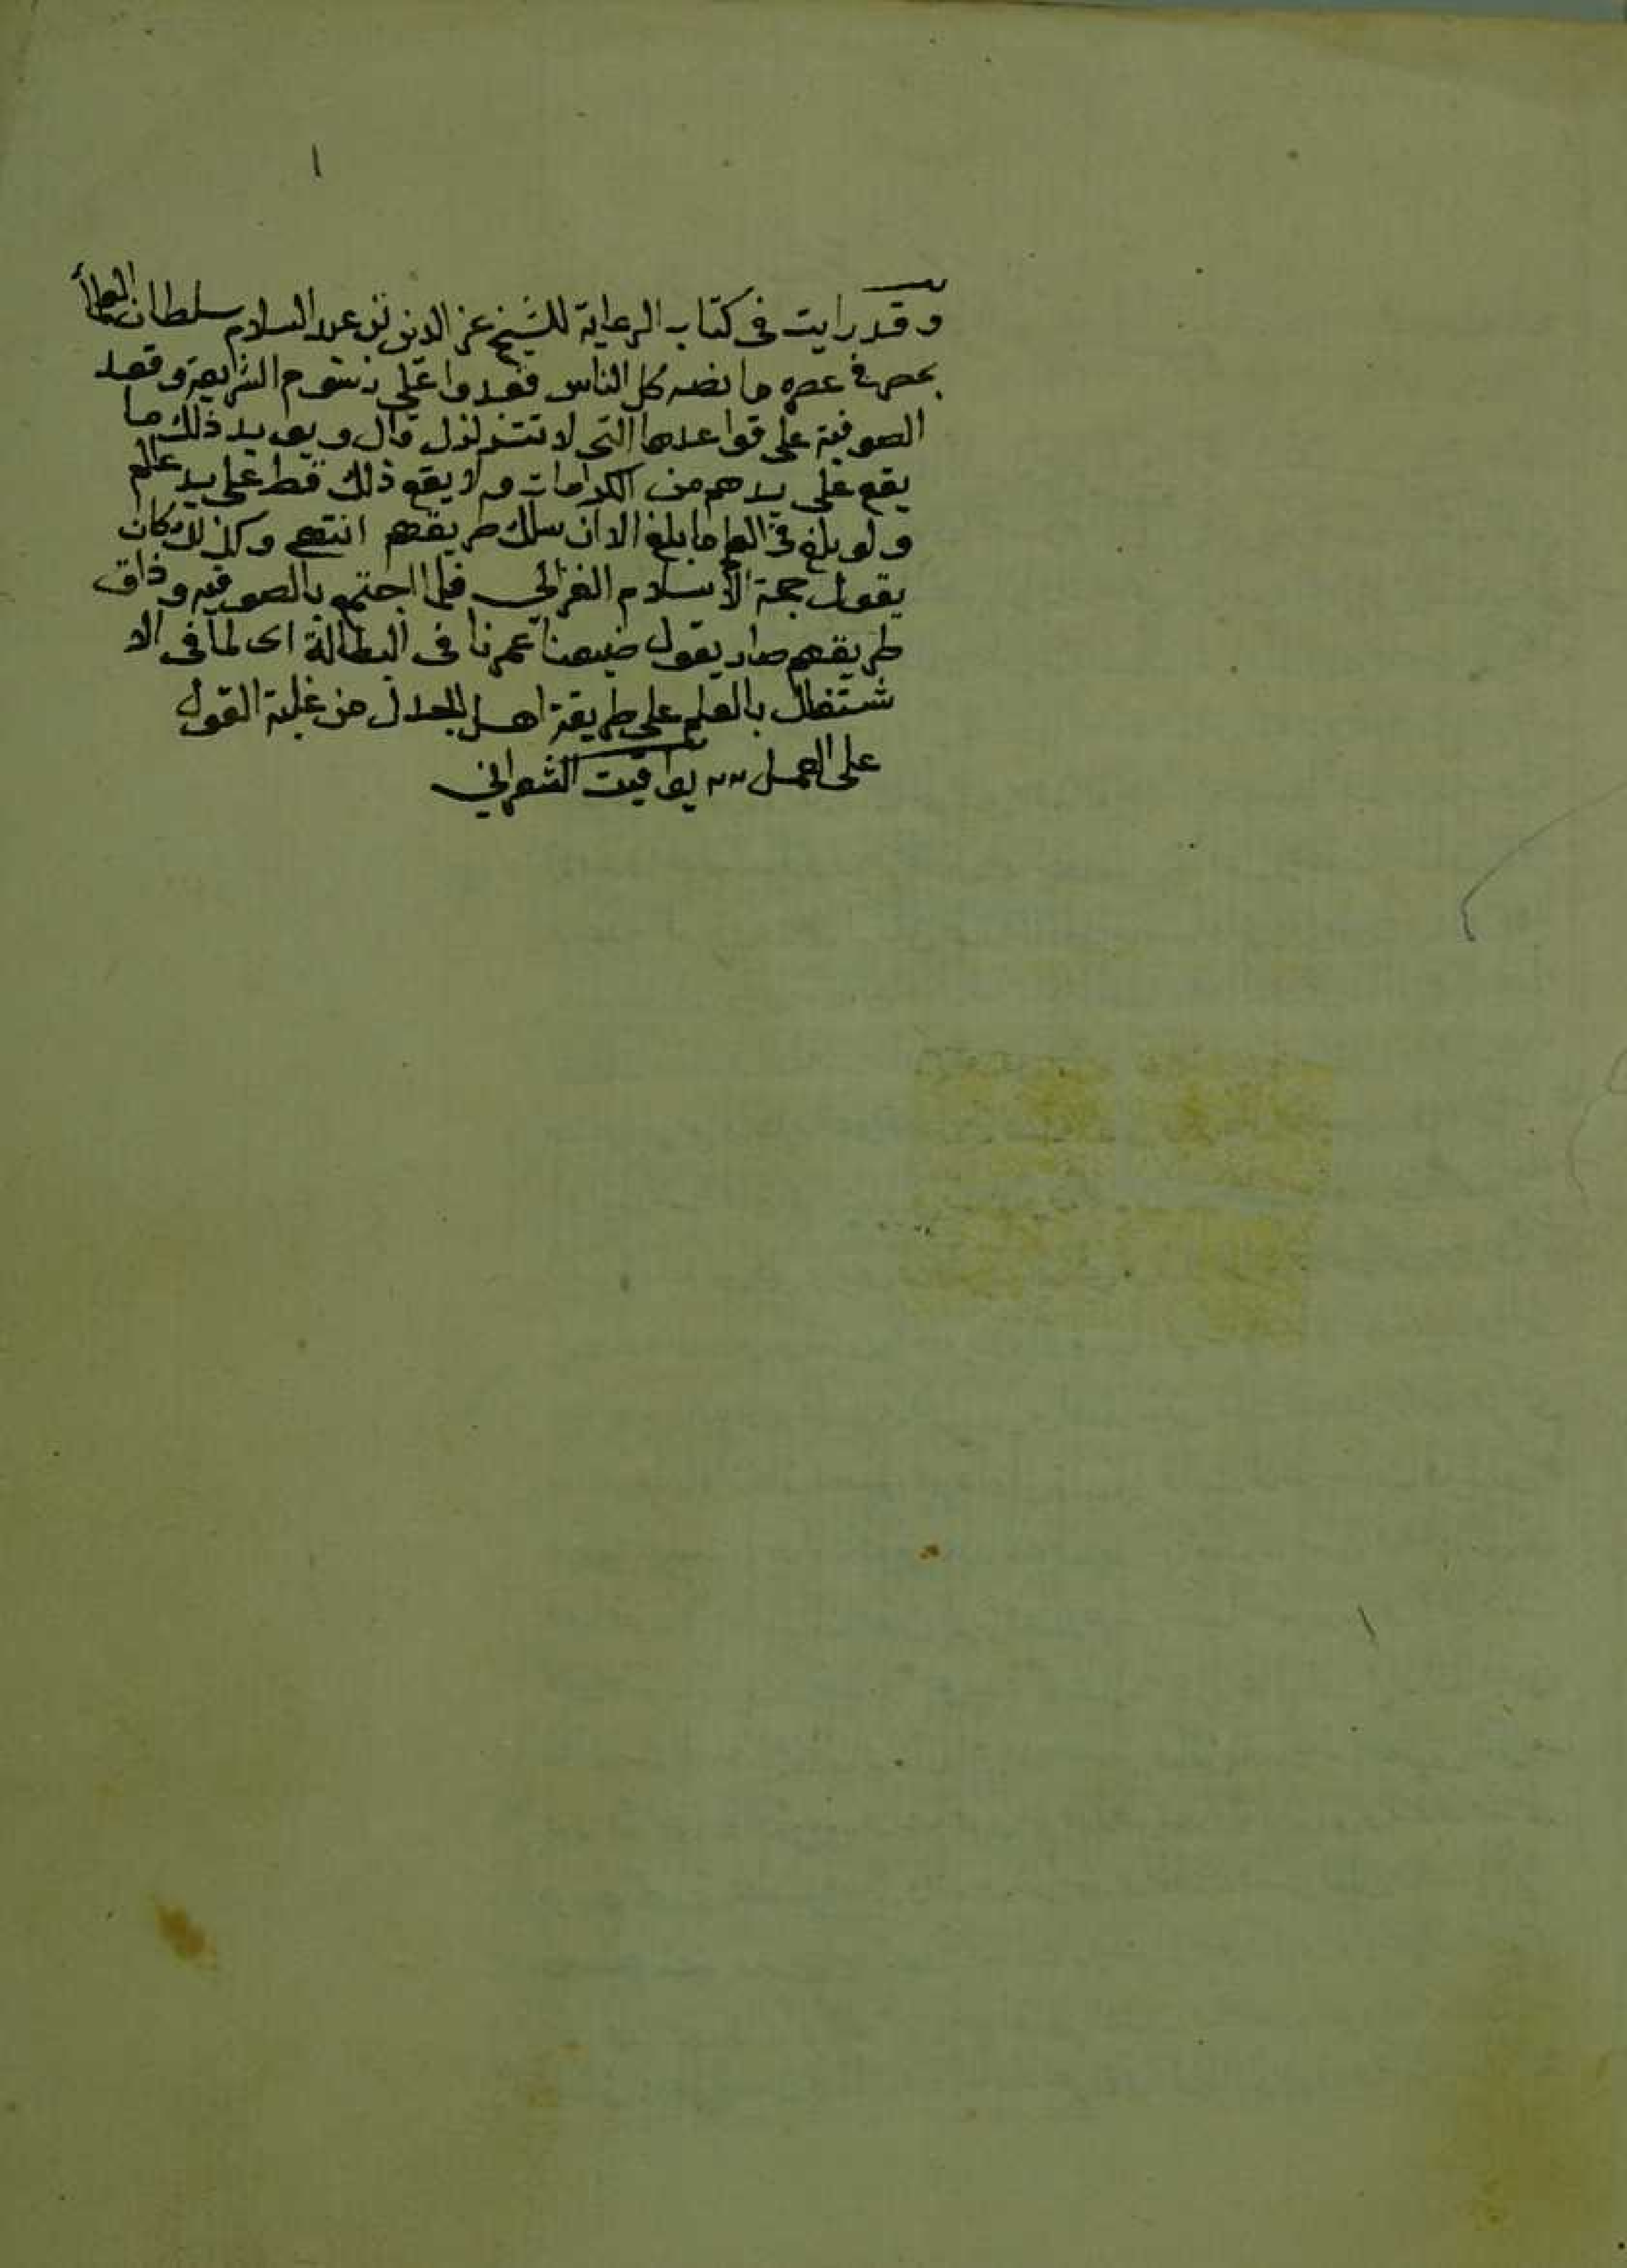 ١
وقد رايت في كتاب الرعاية للشيخ عز الدين بن عبد السلام سلطان العلماء
بمصر في عصره ما نصه كل الناس قعدوا على رسوم الشريعة وقعد
الصوفية على قواعدها التي لا تتزلزل قال ويويد ذلك ما
يقع على يدهم من الكرامات ولا يقع ذلك قط على يد عالم
ولو بلغ في العلم ما بلغ الا ان سلك طريقهم انتهى وكذلك كان
يقول حجة الاسلام الغزالي فلما اجتمع بالصوفيه وذاق
طريقهم صار يقول ضيعنا عمرنا في البطالة اى لما في الا
شتغال بالعلم على طريقة اهل الجدل من غلبة القول
على العمل يواقيت الشعراني